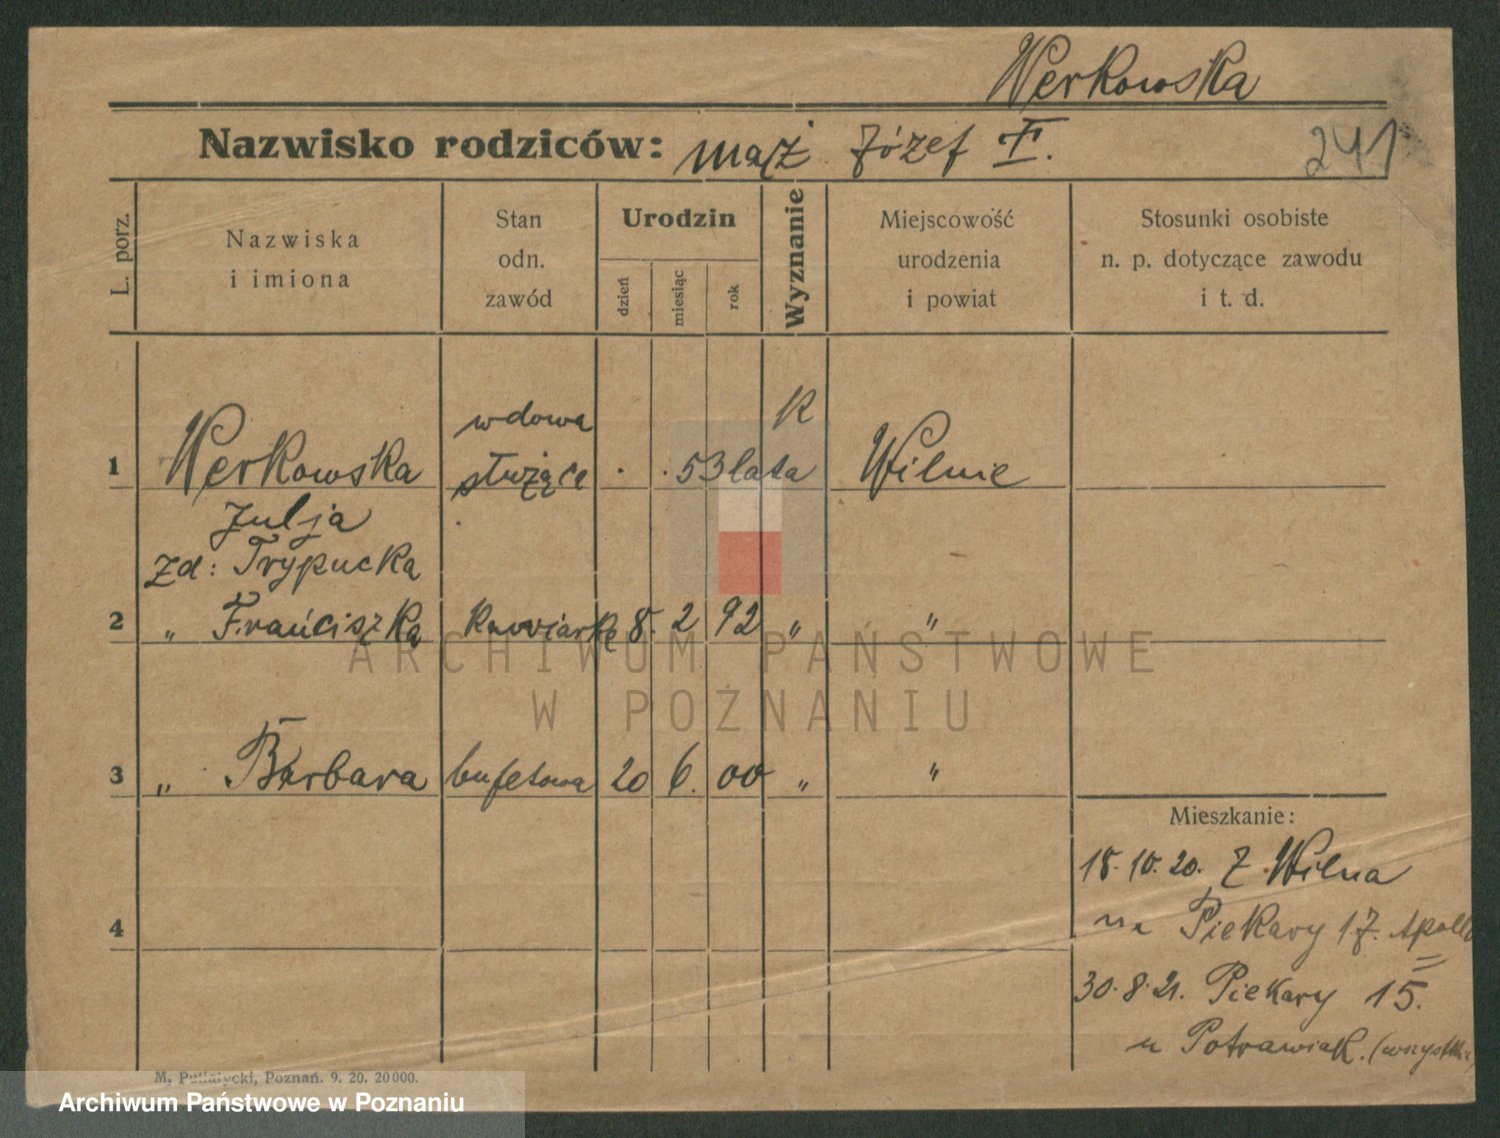 Werkowska
Nazwisko rodziców: mąż Józef F.
241
L. porz.
Nazwiska
i imiona
Stan
odn.
zawód
Urodzin
dzień
miesiąc
rok
Wyznanie
Miejscowość
urodzenia
i powiat
Stosunki osobiste
n. p. dotyczące zawodu
i t. d.
wdowa k
1 Werkowska służąca . . 53 lata Wilnie
Julja
zd: Trypucka
2 „ Franciszka kawiarka 8. 2 92 „ „
3 „ Barbara bufetowa 20 6. 00 „ „
Mieszkanie:
18.10.20. Z Wilna
na Piekary 17. Apollo
4
30.8.21. Piekary 15.
u Potrawiak.
M, Putiatycki, Poznań. 9. 20. 20000.
ARCHIWUM PAŃSTWOWE
W POZNANIU
Archiwum Państwowe w Poznaniu